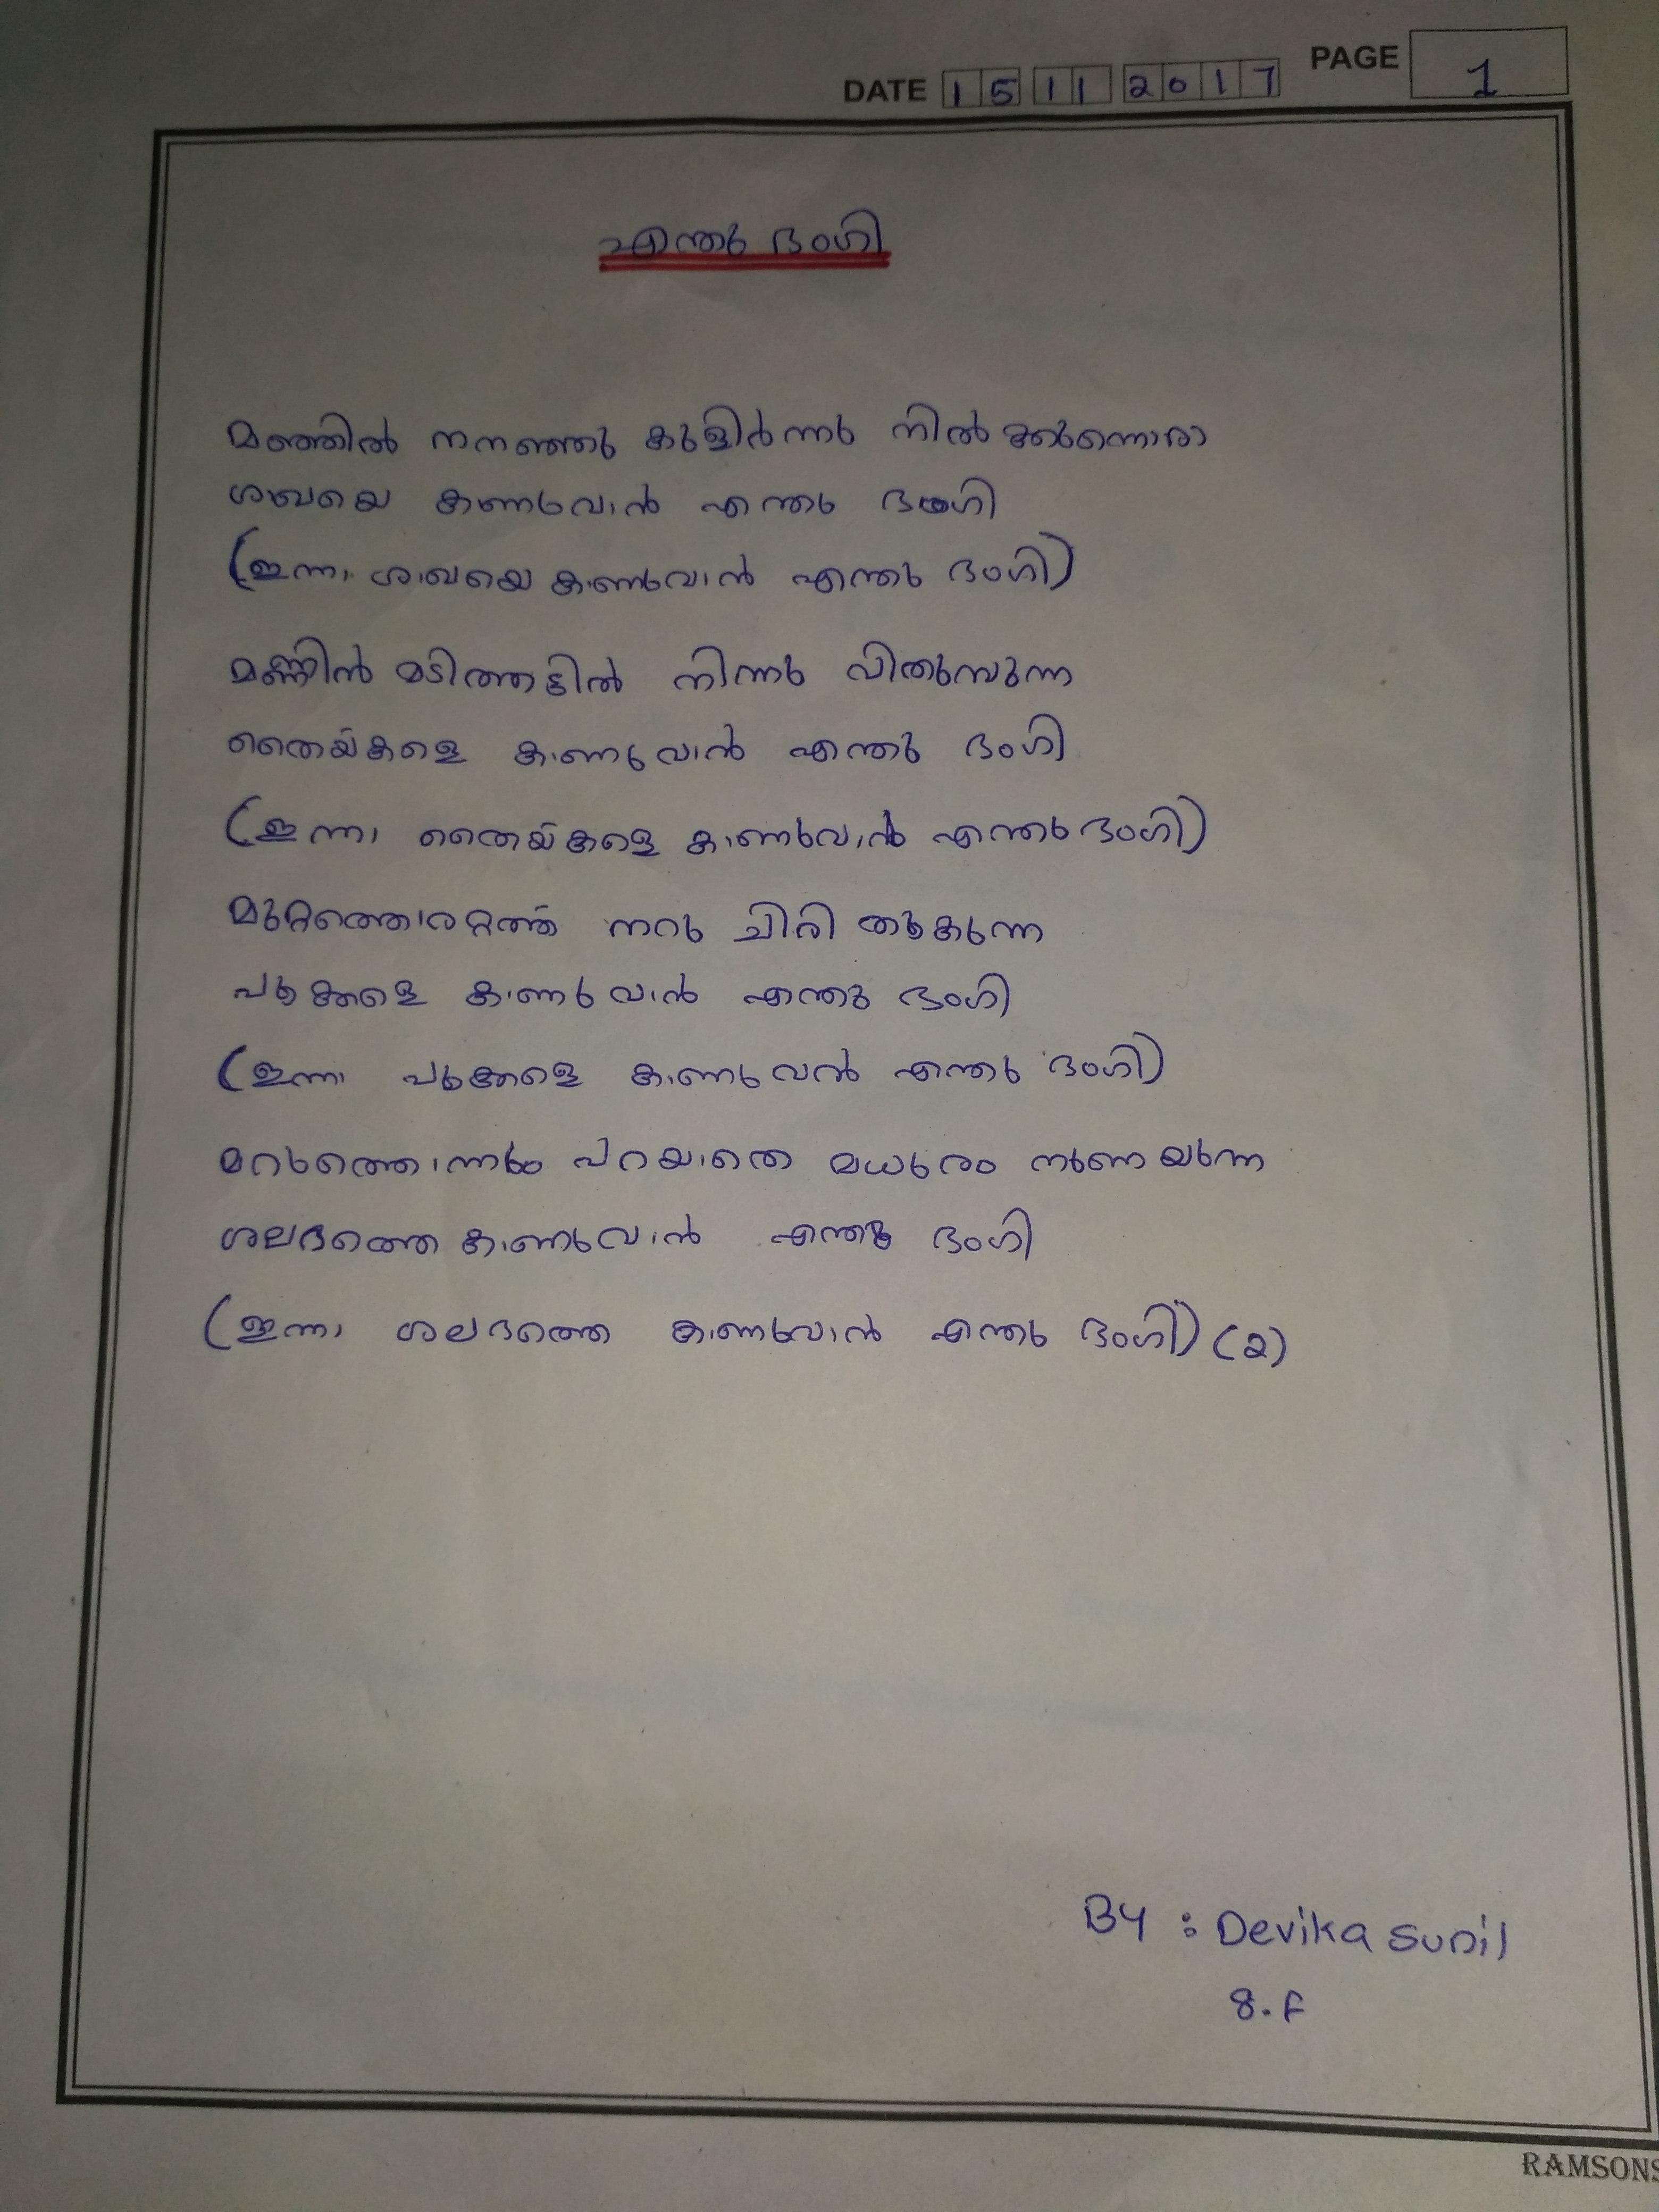 DATE 15 11 2017 PAGE 1
എന്തു ഭംഗി
മഞ്ഞിൽ നനഞ്ഞു കുളിർന്നു നിൽക്കുന്നൊരാ
ശാഖയെ കാണുവാൻ എന്തു ഭംഗി
(ഇന്നാ ശാഖയെ കാണുവാൻ എന്തു ഭംഗി)
മണ്ണിൻ മടിത്തട്ടിൽ നിന്നു വിതുമ്പുന്ന
തൈയ്കളെ കാണുവാൻ എന്തു ഭംഗി
(ഇന്നാ തൈയ്കളെ കാണുവാൻ എന്തു ഭംഗി)
മുറ്റത്തൊരറ്റത്ത് നറു ചിരി തൂകുന്ന
പൂക്കളെ കാണുവാൻ എന്തു ഭംഗി
(ഇന്നാ പൂക്കളെ കാണുവൻ എന്തു ഭംഗി)
മറുത്തൊന്നും പറയാതെ മധുരം നുണയുന്ന
ശലഭത്തെ കാണുവാൻ എന്തു ഭംഗി
(ഇന്നാ ശലഭത്തെ കാണുവാൻ എന്തു ഭംഗി) (2)
By : Devika Sunil
8.F
RAMSONS